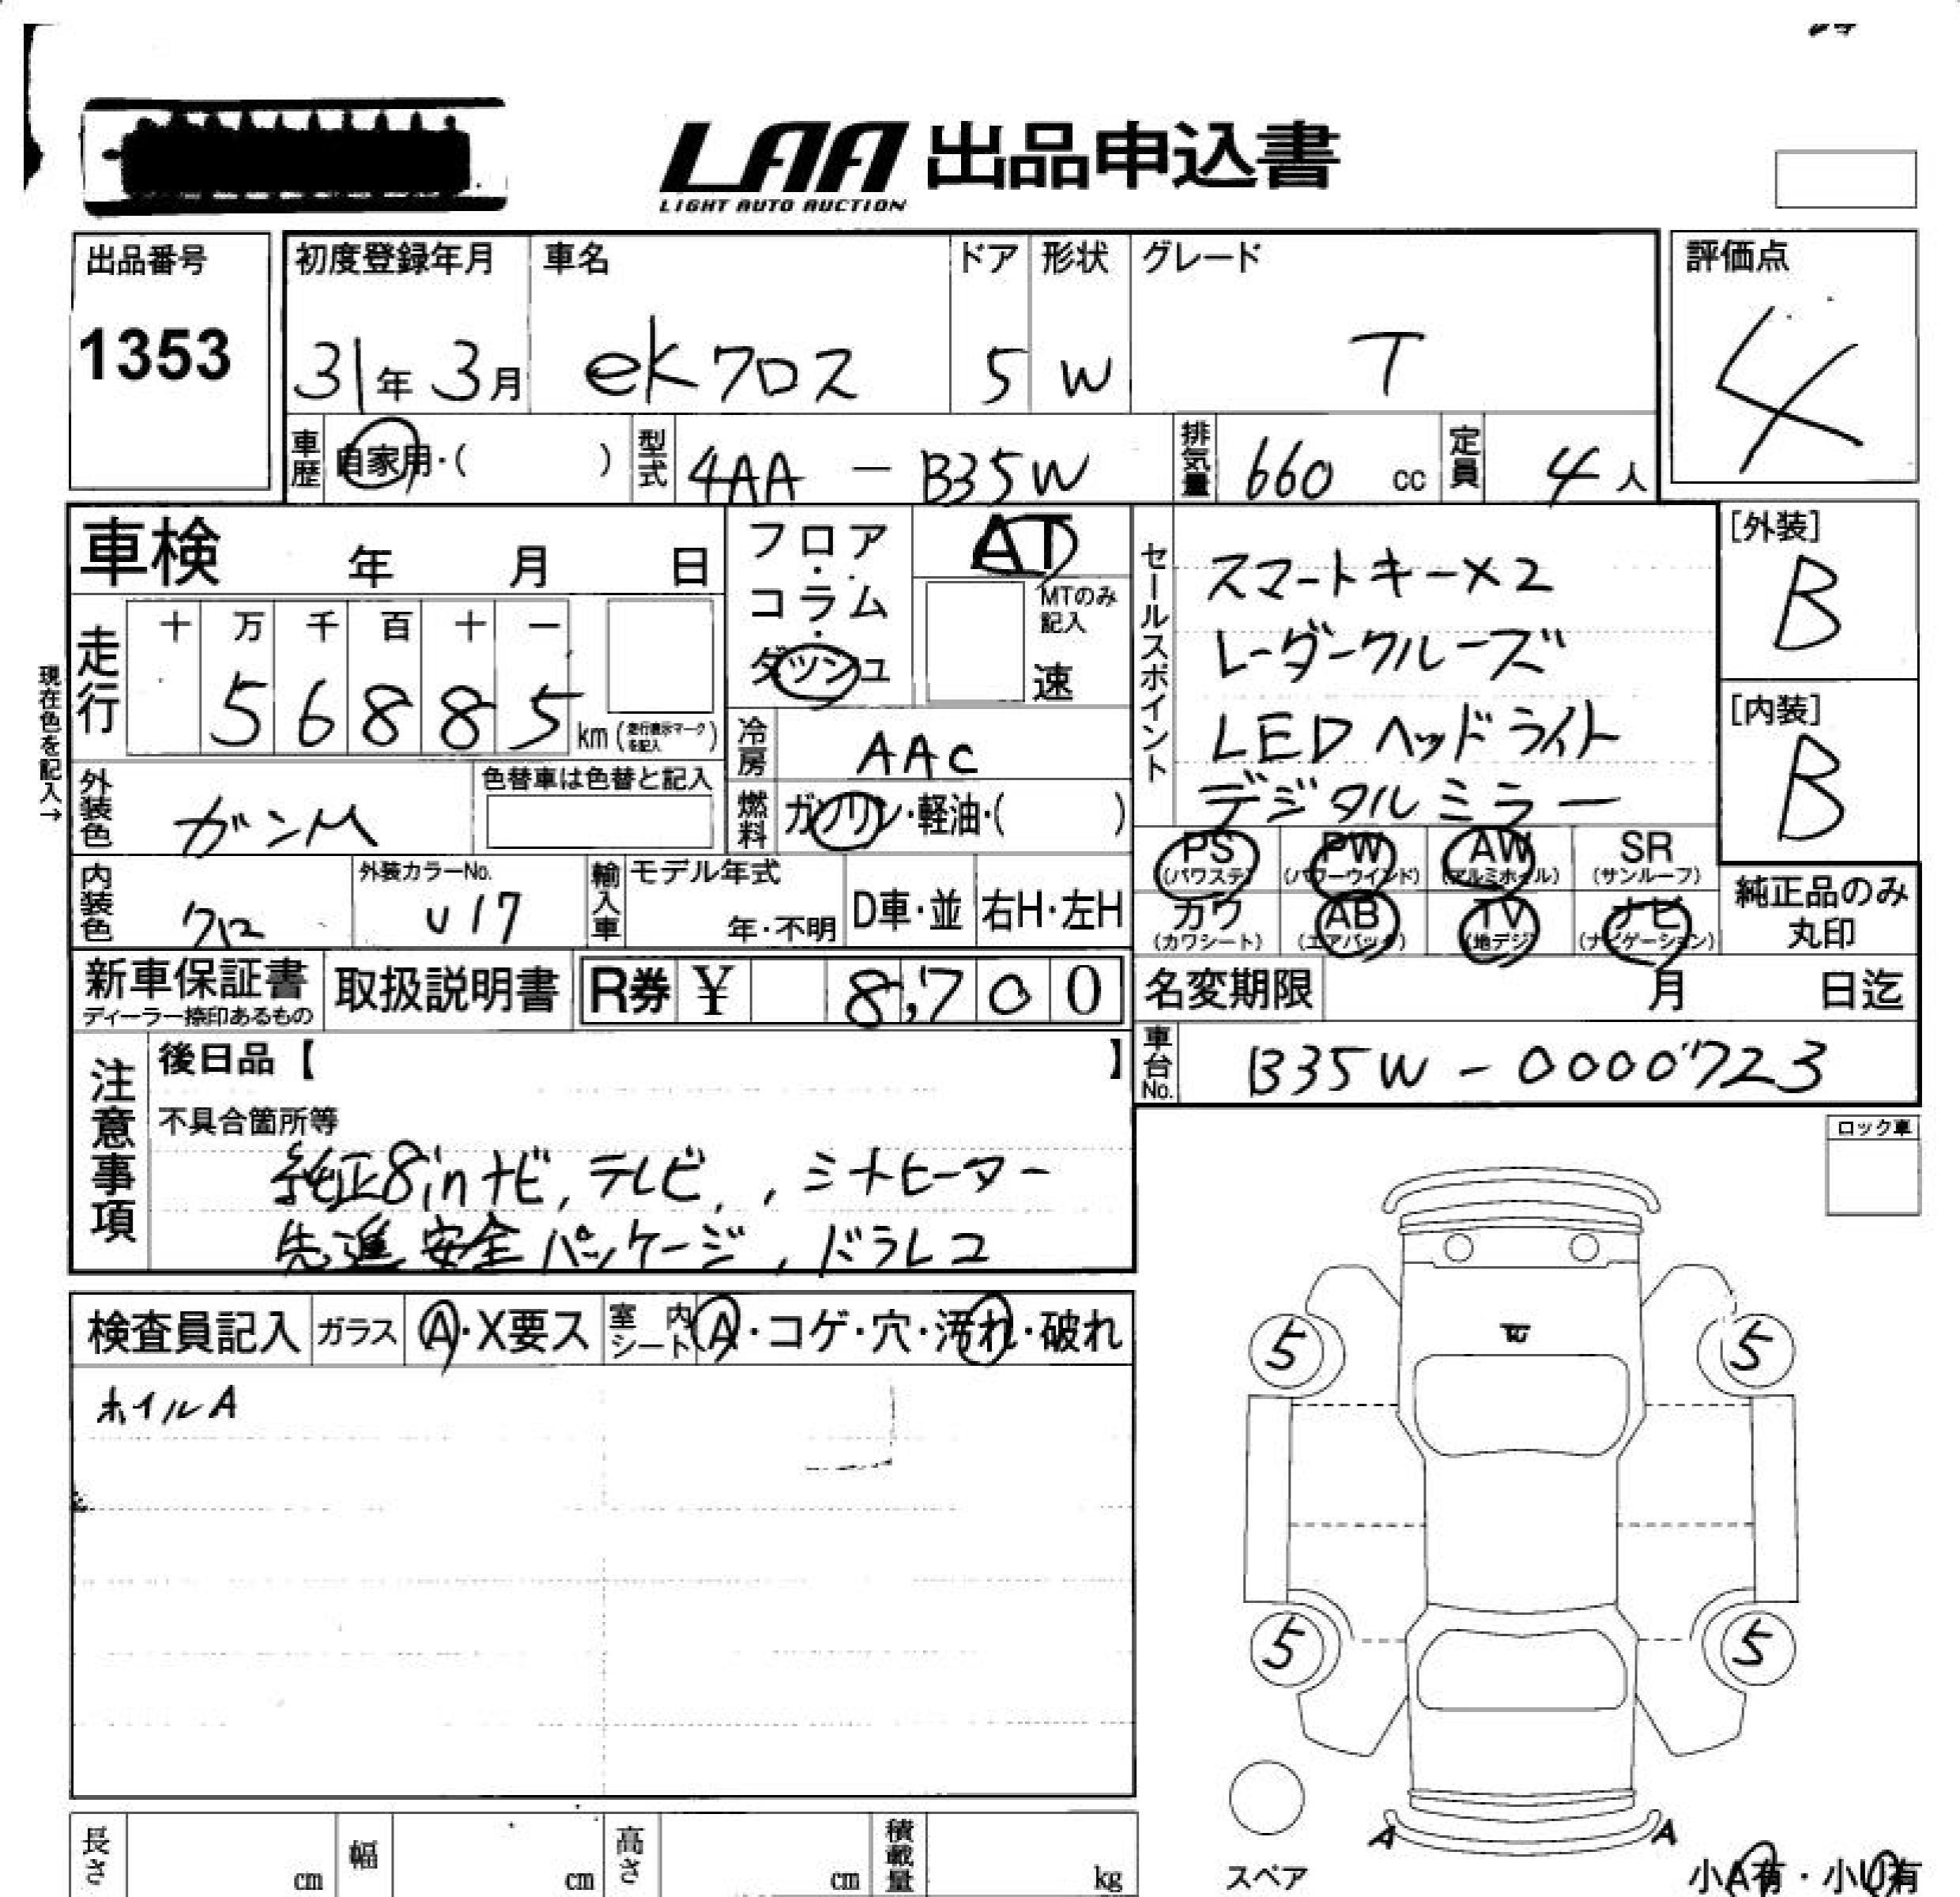 LAA 出品申込書
LIGHT AUTO AUCTION
出品番号
1353
初度登録年月
31年 3月
車名
eKクロス
ドア
5
形状
W
グレード
T
評価点
4
車歴
自家用・( )
型式
4AA － B35W
排気量
660 cc
定員
4人
車検 年 月 日
フロア・コラム・ダッシュ
AT
MTのみ記入
速
走行
十 万 千 百 十 一
5 6 8 8 5 km (走行表示マークを記入)
現在色を記入→
冷房
AAC
燃料
ガソリン・軽油・( )
外装色
ガンM
色替車は色替と記入
内装色
クロ
外装カラーNo.
U17
輸入車
モデル年式
年・不明
D車・並
右H・左H
セールスポイント
スマートキー×2
レーダークルーズ
LEDヘッドライト
デジタルミラー
[外装]
B
[内装]
B
PS (パワステ)
PW (パワーウインド)
AW (アルミホイル)
SR (サンルーフ)
カワ (カワシート)
AB (エアバック)
TV (地デジ)
ナビ (ナビゲーション)
純正品のみ
丸印
新車保証書
ディーラー捺印あるもの
取扱説明書
R券 ¥ 8,700
名変期限 月 日迄
車台No.
B35W - 0000723
注意事項
後日品【 】
不具合箇所等
純正8inナビ, テレビ, , ミナヒーター
先進安全パッケージ, ドラレコ
ロック車
検査員記入
ガラス
A・X要ス
室内シート
A・コゲ・穴・汚れ・破れ
ホイルA
5 5
5 5
スペア
A A
小A有・小U有
長さ cm
幅 cm
高さ cm
積載量 kg